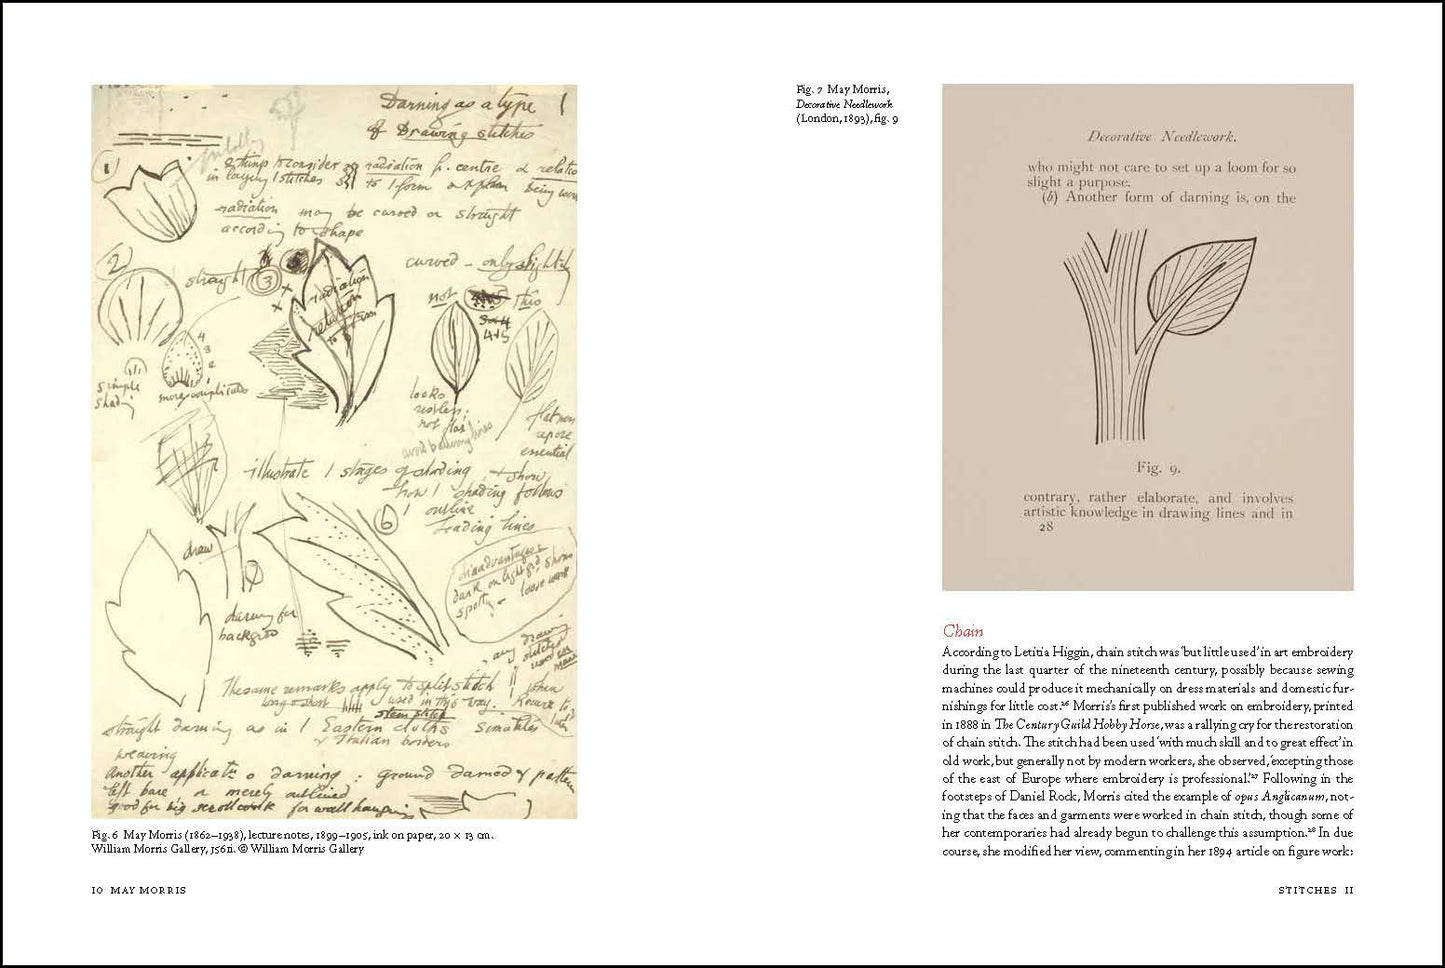 Darning as a type 1
of Drawing stitches
1
3 things to consider radiation fr. centre & relation
in laying / stitches to / form explain being worked
radiation may be curved or straight
according to shape
2
straight 3
curved – only slightly
not this
4 & 5
radiation
relation
to
4
3
2
simple
shading
more complicated
looks
restless;
not flat
avoid balancing lines
flatness
repose
essential
illustrate / stages of shading + show
how / shading follows
/ outline
leading lines
6
draw
disadvantages
dark on light gd. shows
spotty – loose work
darning for
backgrod
any drawing
stitches
used en
masse
The same remarks apply to split stitch
long & short used in this way.
stem stitch
when
straight darning as in / Eastern cloths similates
& Italian borders
weaving
Another applicatn o darning : ground darned & pattern
left bare or merely outlined
good for big scrollwork for wall hanging
Fig. 6 May Morris (1862–1938), lecture notes, 1899–1905, ink on paper, 20 × 13 cm.
William Morris Gallery, J561i. © William Morris Gallery
10 MAY MORRIS
Fig. 7 May Morris,
Decorative Needlework
(London, 1893), fig. 9
Decorative Needlework.
who might not care to set up a loom for so
slight a purpose.
(b) Another form of darning is, on the
Fig. 9.
contrary, rather elaborate, and involves
artistic knowledge in drawing lines and in
28
Chain
According to Letitia Higgin, chain stitch was ‘but little used’ in art embroidery
during the last quarter of the nineteenth century, possibly because sewing
machines could produce it mechanically on dress materials and domestic fur-
nishings for little cost.²⁶ Morris’s first published work on embroidery, printed
in 1888 in The Century Guild Hobby Horse, was a rallying cry for the restoration
of chain stitch. The stitch had been used ‘with much skill and to great effect’ in
old work, but generally not by modern workers, she observed, ‘excepting those
of the east of Europe where embroidery is professional.’²⁷ Following in the
footsteps of Daniel Rock, Morris cited the example of opus Anglicanum, not-
ing that the faces and garments were worked in chain stitch, though some of
her contemporaries had already begun to challenge this assumption.²⁸ In due
course, she modified her view, commenting in her 1894 article on figure work:
STITCHES 11